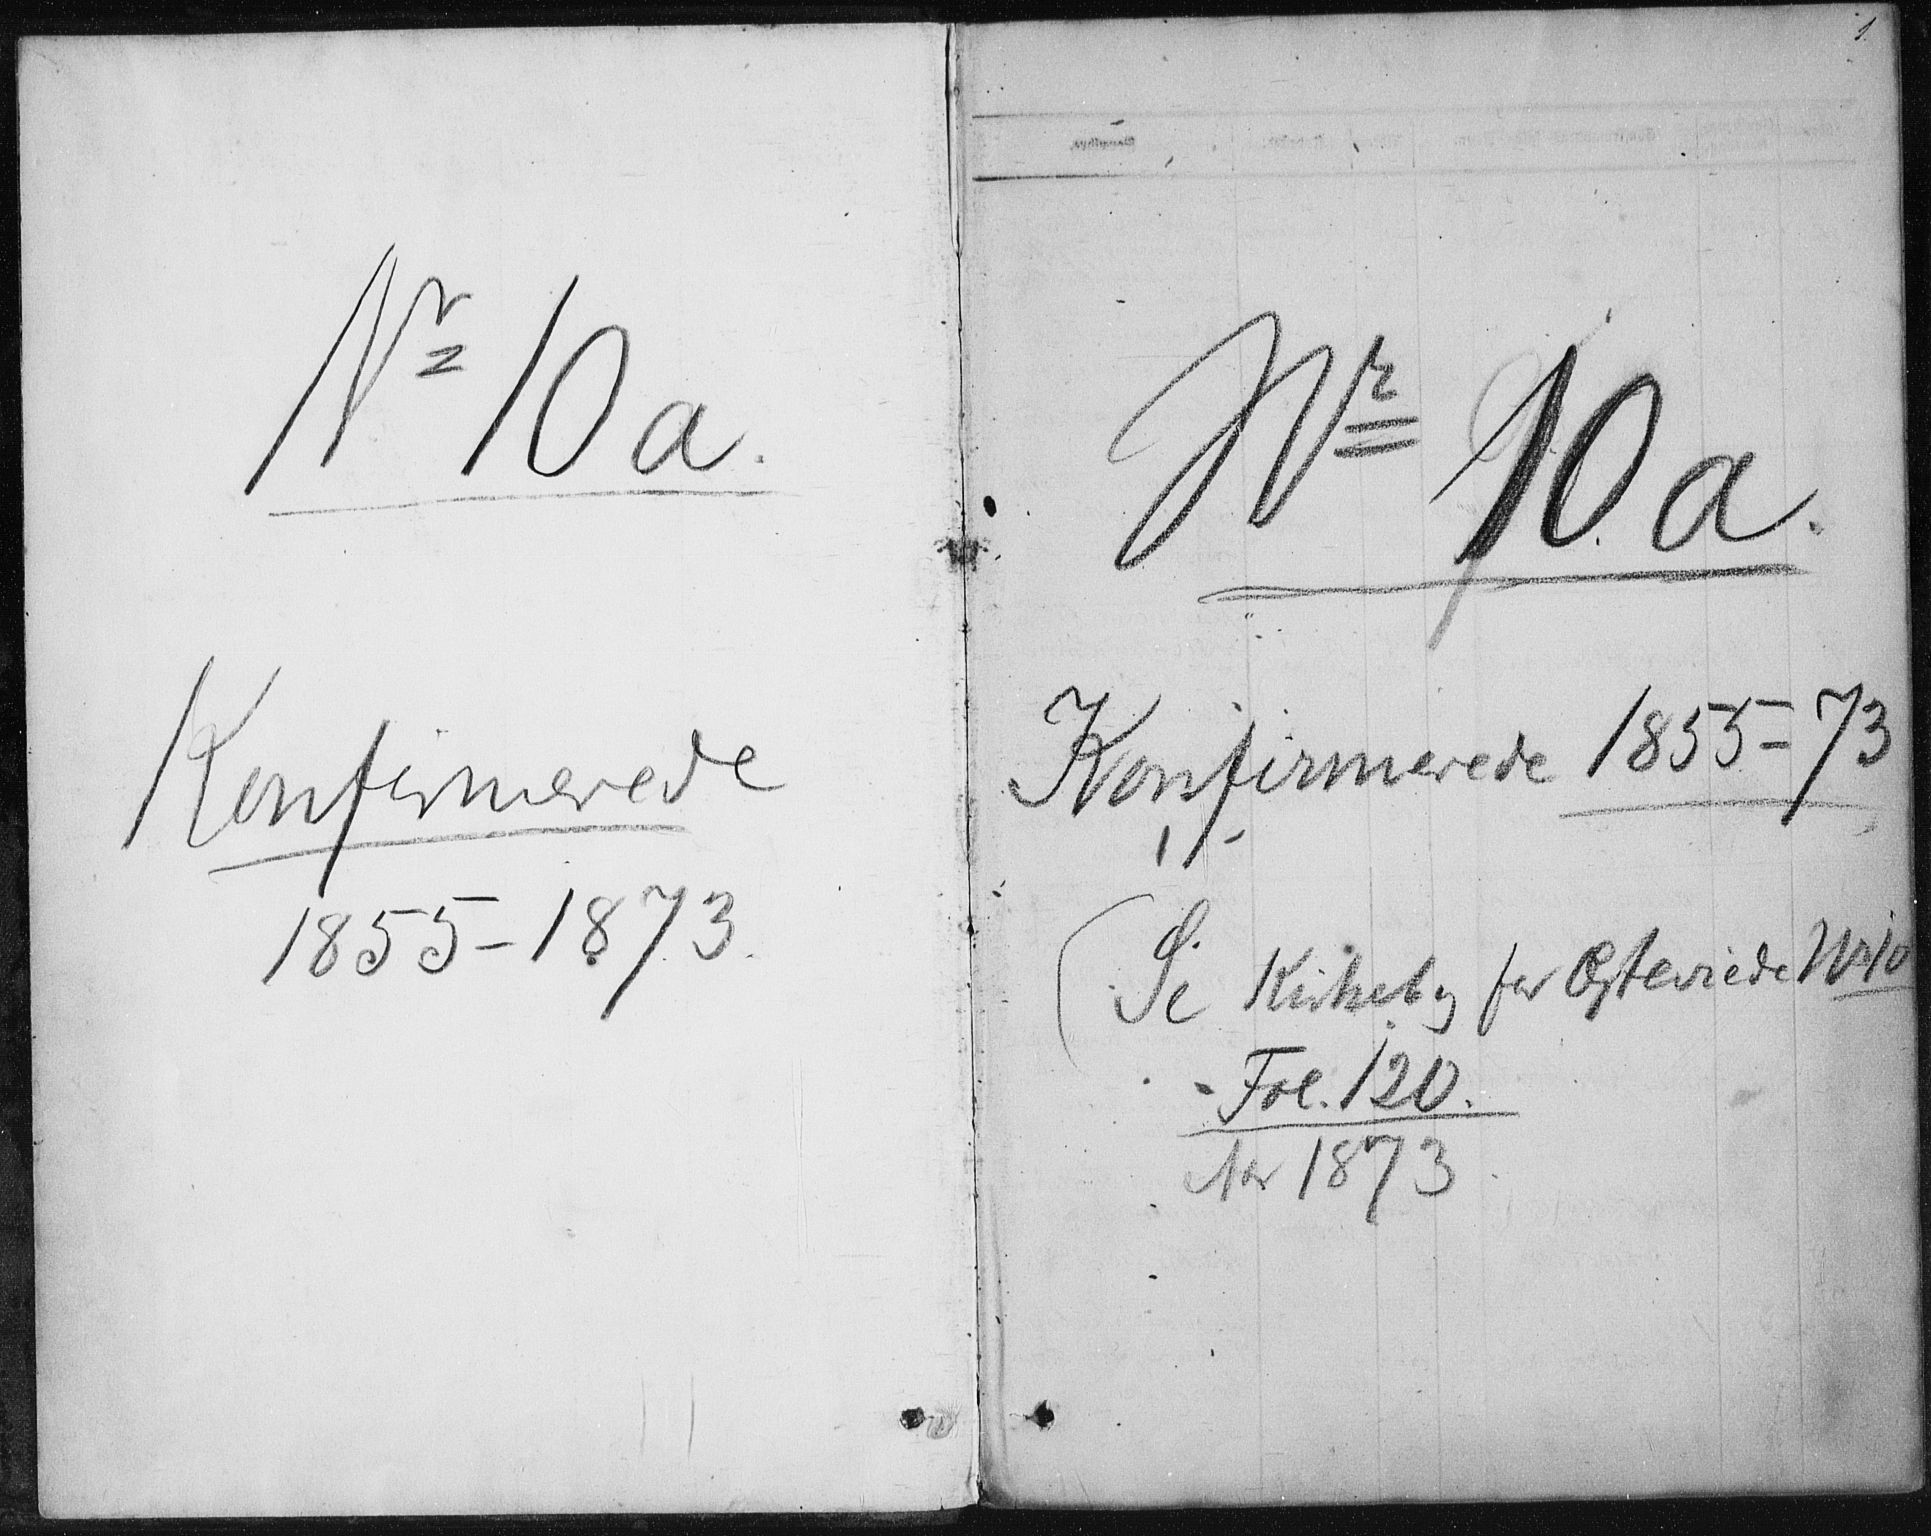 Nr 10 a.
Konfirmerede
1855-1873.
1
Nr 10 a.
Konfirmerede 1855-73
(Se Kirkebog for Østeriede Nr 10
Fol. 120.
1873